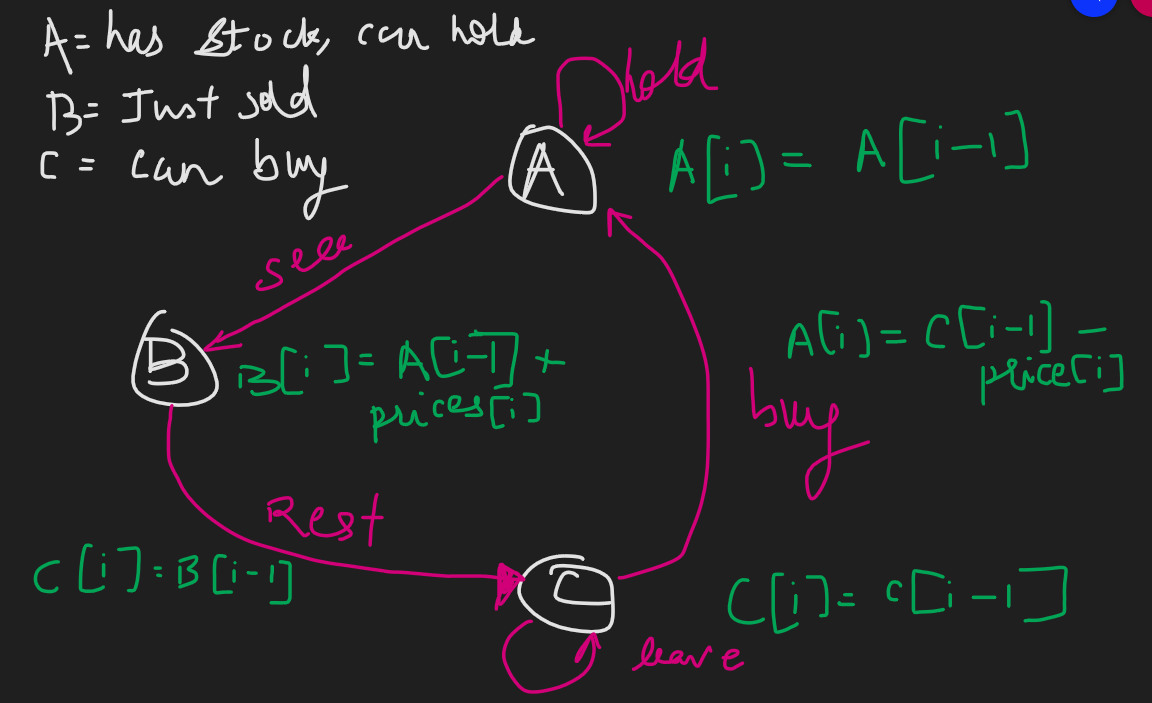 A= has stock, can hold
B= Just sold
C = can buy
hold
A
A[i] = A[i-1]
sell
B
B[i] = A[i-1] +
prices[i]
A[i] = C[i-1] -
price[i]
buy
Rest
C[i]=B[i-1]
C
C[i]= C[i-1]
leave